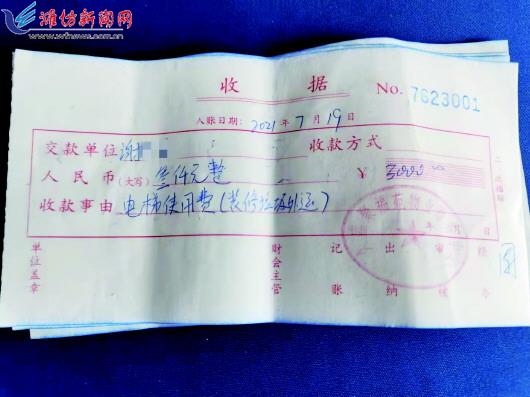 潍坊新闻网
www.wfnews.com.cn
收 据
No. 7623001
入账日期: 2021 年 7 月 19 日
交款单位 谢
收款方式
人民币(大写) 叁仟元整 ¥ 3000.00
收款事由 电梯使用费(装修垃圾外运)
年 月 日
单位盖章 财会主管 记账 出纳 审核 经办